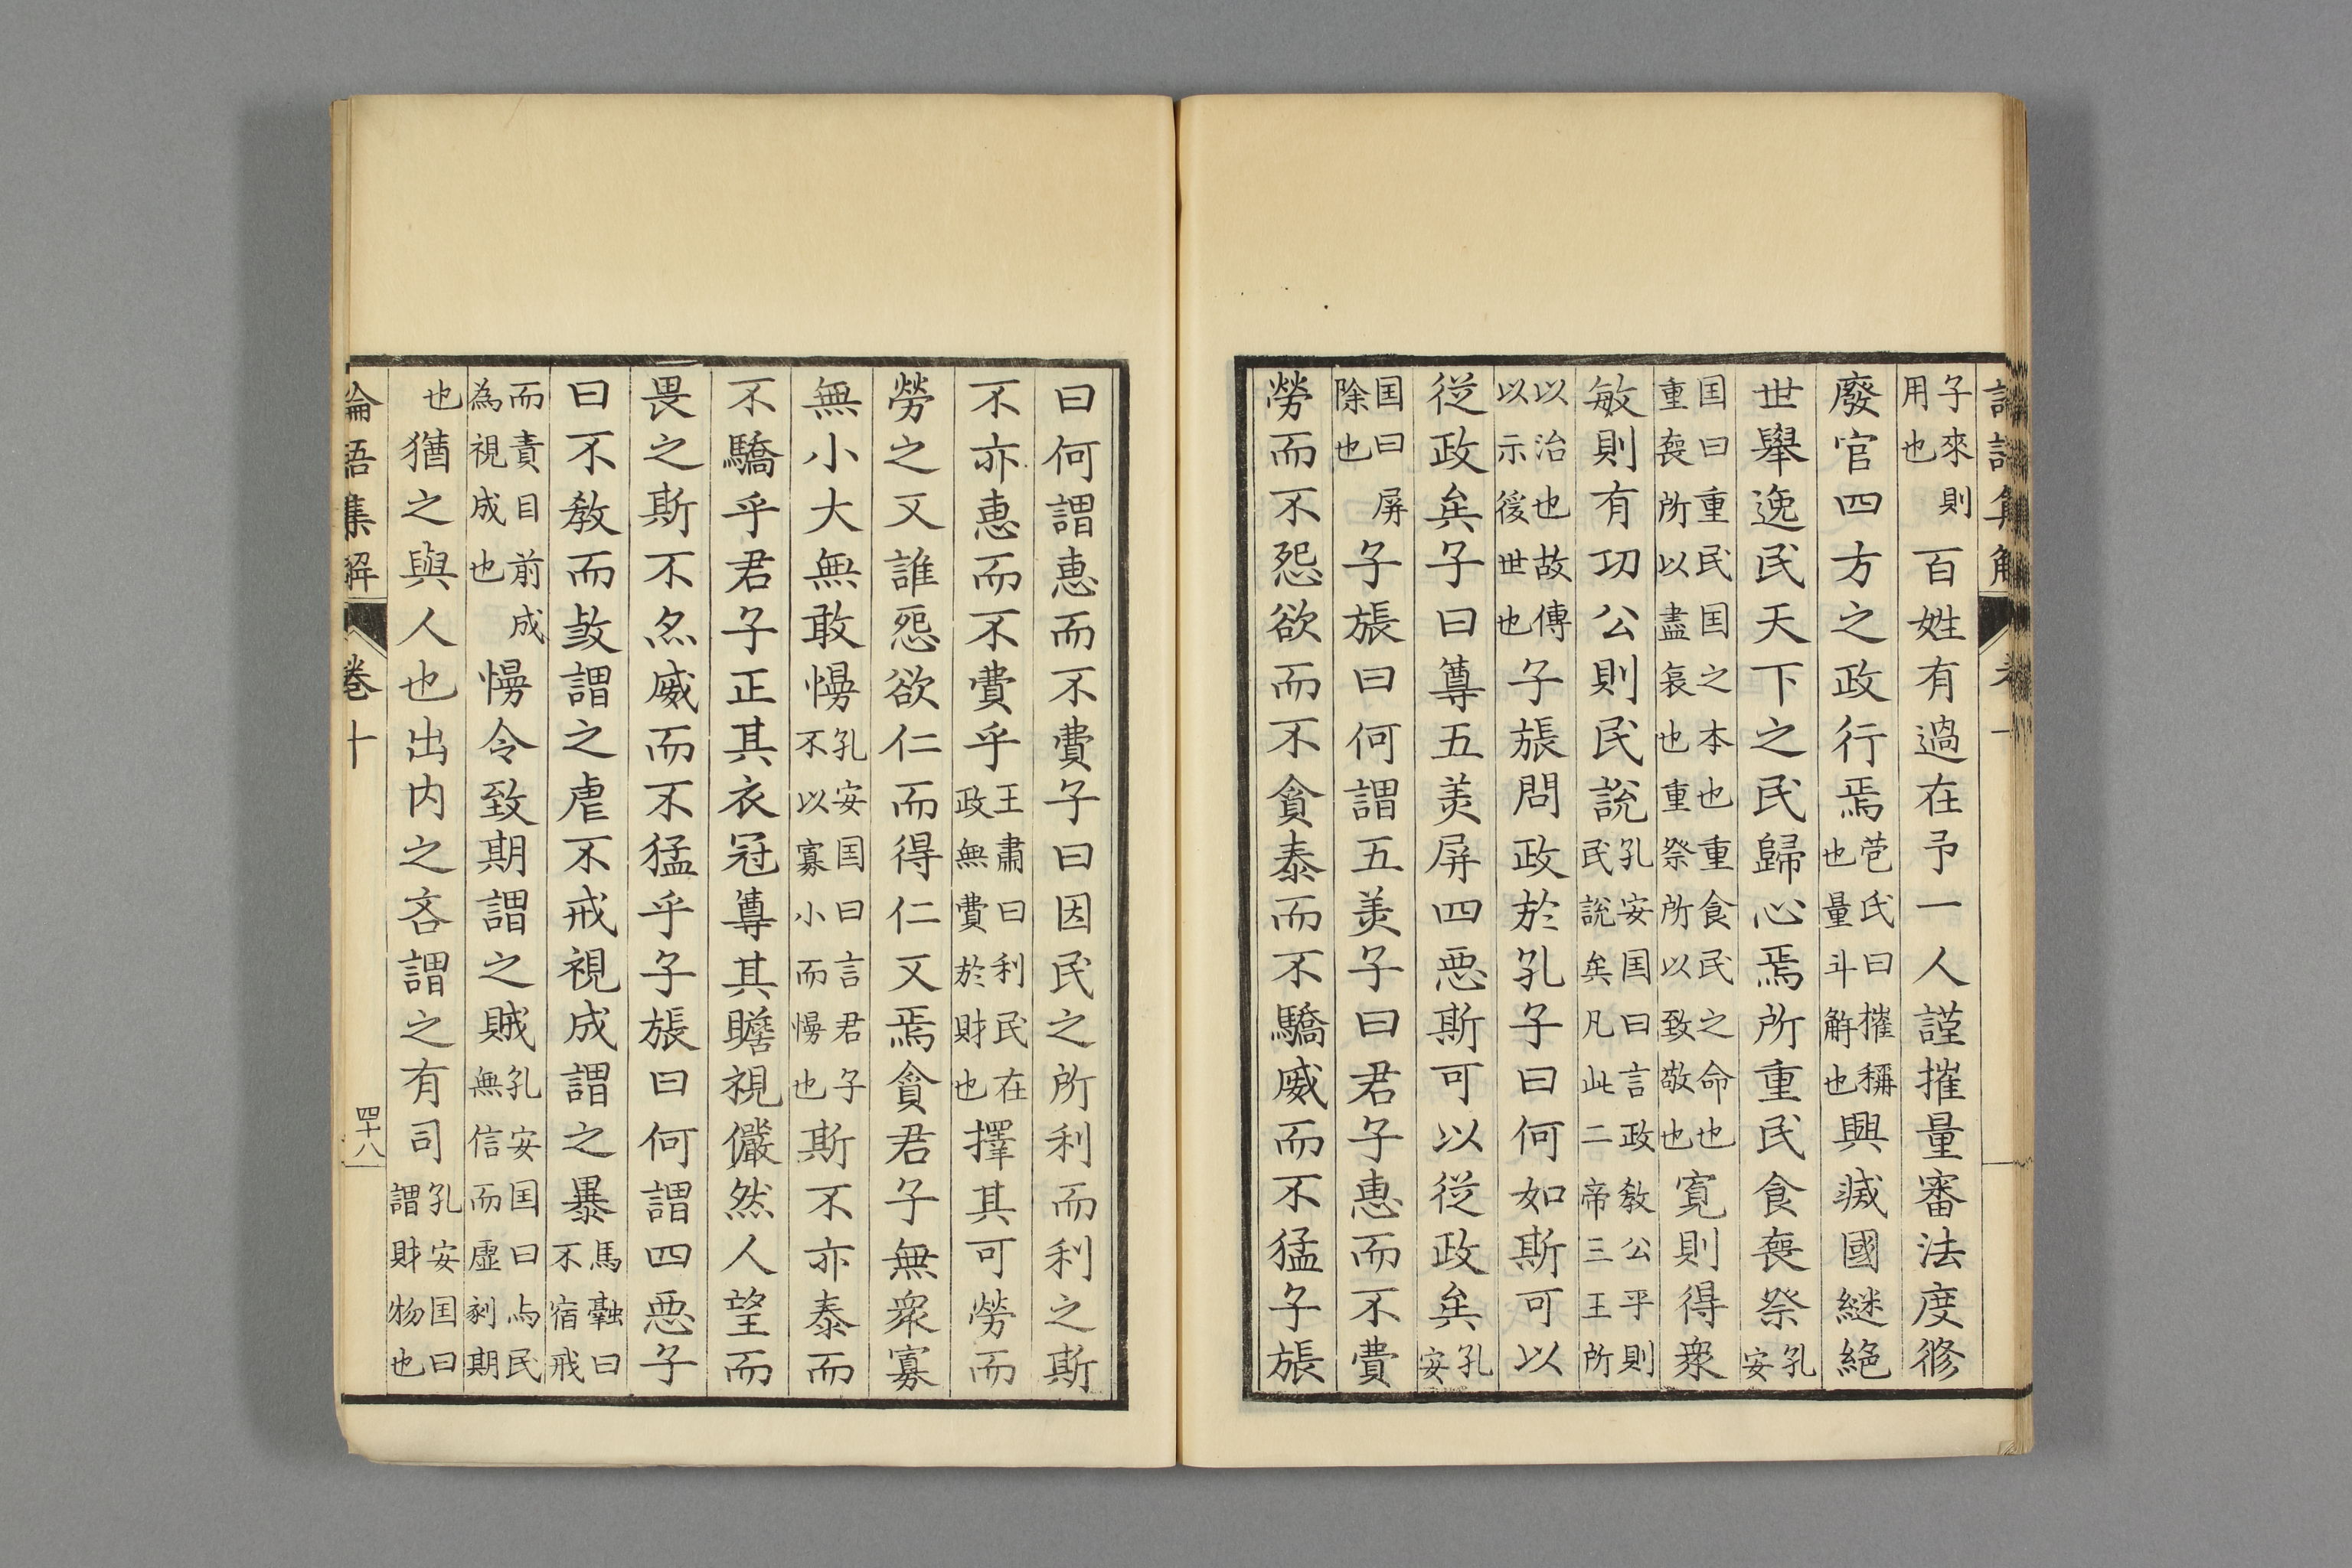 子來則用也百姓有過在予一人謹㩁量審法度修
廢官四方之政行焉苞氏曰㩁稱也量斗解也興滅國継絶
世舉逸民天下之民歸心焉所重民食喪祭孔安
囯曰重民囯之本也重食民之命也重喪所以盡哀也重祭所以致敬也寛則得衆
敏則有功公則民說孔安囯曰言政教公平則民說矣凡此二帝三王所
以治也故傳以示後世也子張問政於孔子曰何如斯可以
從政矣子曰尊五美屏四惡斯可以從政矣孔安
囯曰屏除也子張曰何謂五美子曰君子惠而不費
勞而不怨欲而不貪泰而不驕威而不猛子張
曰何謂惠而不費子曰因民之所利而利之斯
不亦惠而不費乎王肅曰利民在政無費於財也擇其可勞而
勞之又誰怨欲仁而得仁又焉貪君子無衆寡
無小大無敢慢孔安囯曰言君子不以寡小而慢也斯不亦泰而
不驕乎君子正其衣冠尊其瞻視儼然人望而
畏之斯不亦威而不猛乎子張曰何謂四惡子
曰不教而煞謂之虐不戒視成謂之暴馬融曰不宿戒
而責目前成為視成也慢令致期謂之賊孔安囯曰与民無信而虛刻期
也猶之與人也出内之吝謂之有司孔安囯曰謂財物也
論語集解 卷十 四十八